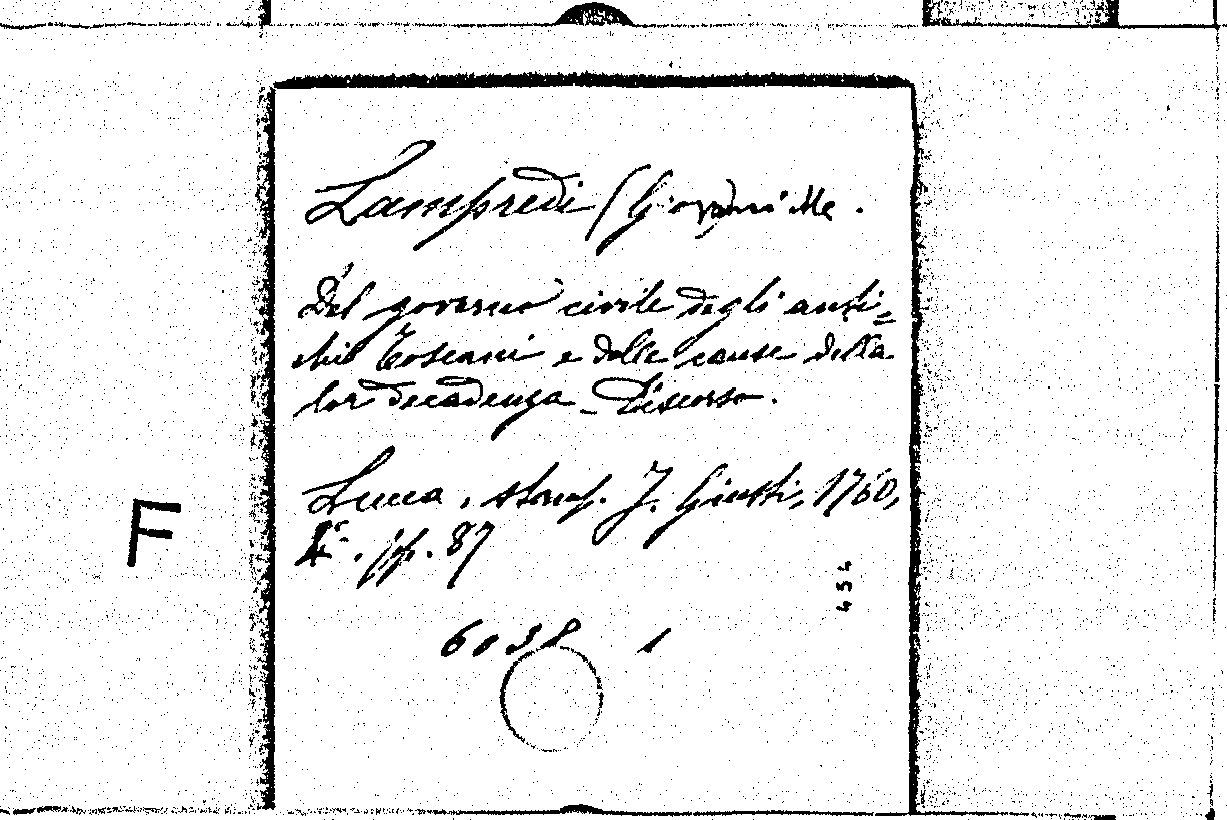 Lampredi (Giovanni Ma.
Del governo civile degli anti=
chi Toscani e delle cause della
lor decadenza - Discorso.
Lucca, stamp. J. Giusti, 1760,
4°. pp. 87
F
454
6038 1